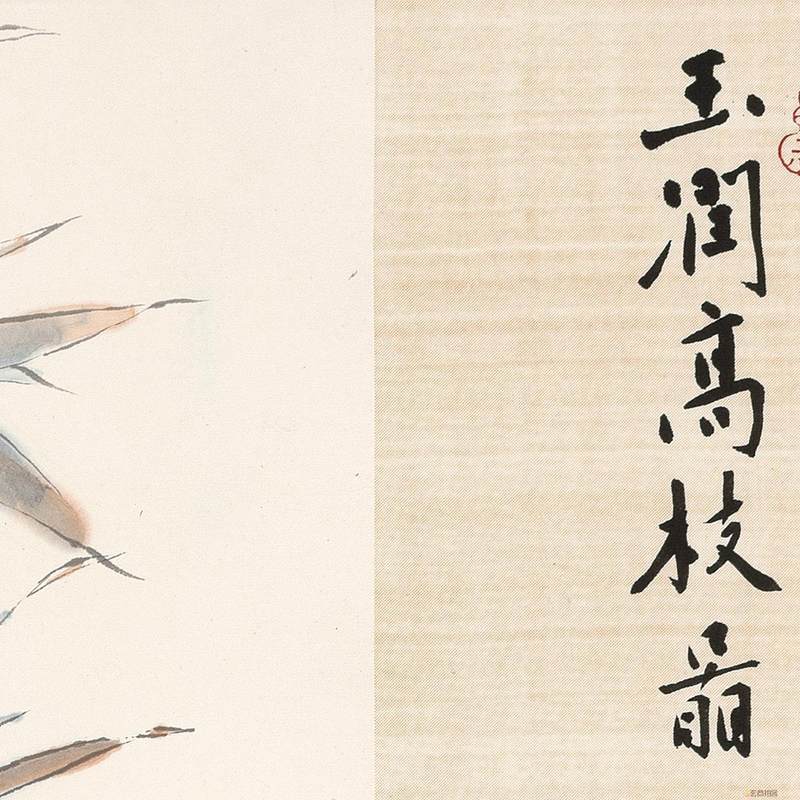 玉潤高枝